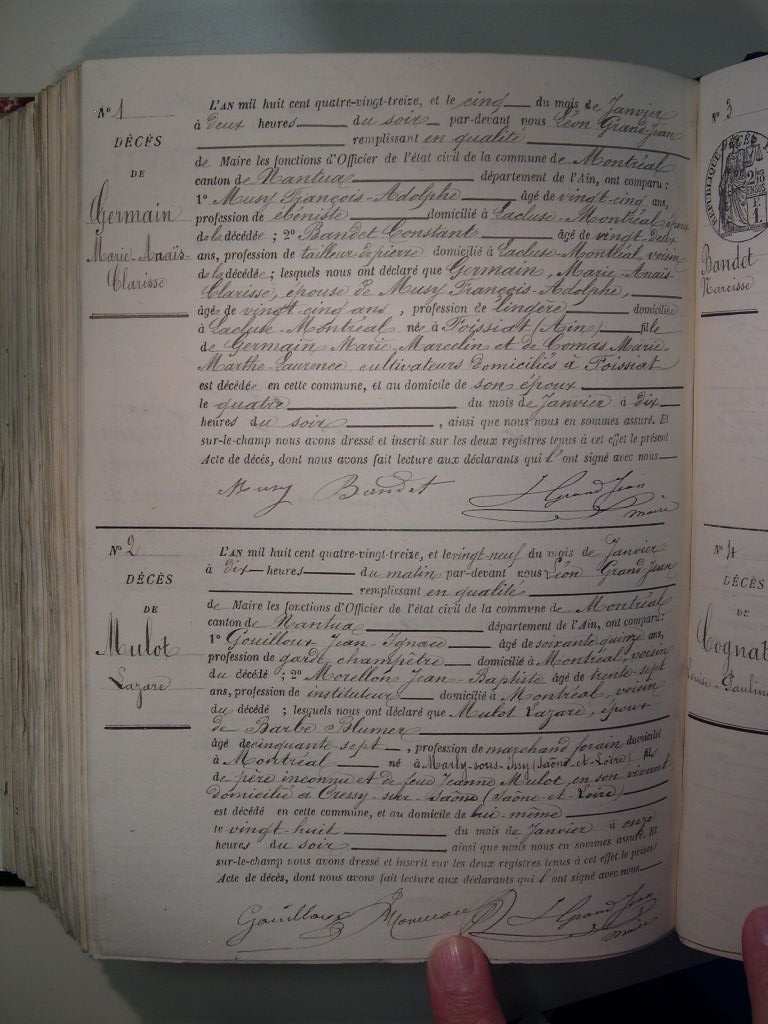 N° 1
DÉCÈS
DE
Germain
Marie-Anaïs-
Clarisse
L'AN mil huit cent quatre-vingt-treize, et le cinq du mois de Janvier
à deux heures du soir par-devant nous Léon Grand-Jean
remplissant en qualité
de Maire les fonctions d'Officier de l'état civil de la commune de Montréal
canton de Nantua département de l'Ain, ont comparu :
1° Musy François-Adolphe âgé de vingt-cinq ans,
profession de ébéniste domicilié à Lacluse-Montréal, époux
de la décédée ; 2° Bandet Constant âgé de vingt-deux
ans, profession de tailleur de pierre domicilié à Lacluse-Montréal voisin
de la décédée ; lesquels nous ont déclaré que Germain, Marie-Anaïs-
Clarisse, épouse de Musy François-Adolphe,
âgée de vingt-cinq ans, profession de lingère domiciliée
à Lacluse-Montréal née à Foissiat (Ain) fille
de Germain Marie-Marcelin et de Comas Marie-
Marthe-Laurence cultivateurs domiciliés à Foissiat
est décédée en cette commune, et au domicile de son époux
le quatre du mois de Janvier à dix
heures du soir, ainsi que nous nous en sommes assuré. Et
sur-le-champ nous avons dressé et inscrit sur les deux registres tenus à cet effet le présent
Acte de décès, dont nous avons fait lecture aux déclarants qui l'ont signé avec nous
Musy Bandet L Grand Jean
maire
N° 2
DÉCÈS
DE
Mulot
Lazare
L'AN mil huit cent quatre-vingt-treize, et le vingt-neuf du mois de Janvier
à dix heures du matin par-devant nous Léon Grand Jean
remplissant en qualité
de Maire les fonctions d'Officier de l'état civil de la commune de Montréal
canton de Nantua département de l'Ain, ont comparu :
1° Gouilloux Jean-Ignace âgé de soixante quinze ans,
profession de garde champêtre domicilié à Montréal, voisin
du décédé ; 2° Morillon Jean-Baptiste âgé de trente-sept
ans, profession de instituteur domicilié à Montréal, voisin
du décédé ; lesquels nous ont déclaré que Mulot Lazare, époux
de Barbe Blumer
âgé de cinquante sept, profession de marchand forain domicilié
à Montréal né à Marly-sous-Issy (Saône-et-Loire) fils
de père inconnu et de feue Jeanne Mulot en son vivant
domiciliée à Cressy-sur-Saône (Saône-et-Loire)
est décédé en cette commune, et au domicile de lui-même
le vingt-huit du mois de Janvier à onze
heures du soir ainsi que nous nous en sommes assuré. Et
sur-le-champ nous avons dressé et inscrit sur les deux registres tenus à cet effet le présent
Acte de décès, dont nous avons fait lecture aux déclarants qui l'ont signé avec nous
Gouilloux L Grand Jean
maire
N° 3
Bandet
Narcisse
N° 4
DÉCÈS
DE
Cognat